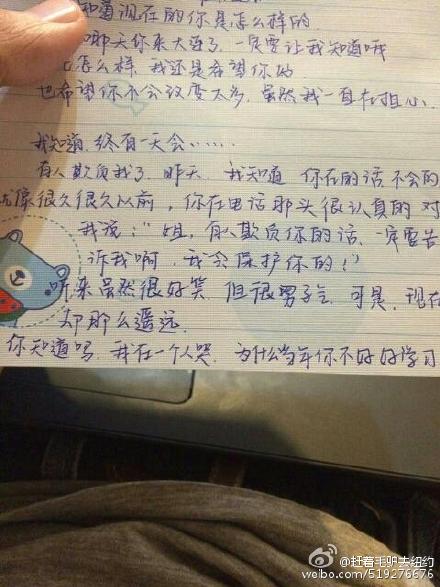 知道现在的你是怎么样的
哪天你来大连了,一定要让我知道哦
怎么样,我还是希望你的
也希望你不会改变太多,虽然我一直在担心.
我知道,终有一天会……
有人欺负我了.昨天.我知道 你在的话,不会的
像很久很久以前,你在电话那头很认真的对
我说:"姐,有人欺负你的话,一定要告
诉我啊,我会保护你的!"
听来虽然很好笑,但很男子气,可是,现在
却那么遥远.
你知道吗,我在一个人哭,为什么当年你不好好学习
@赶着毛驴去纽约
weibo.com/519276676